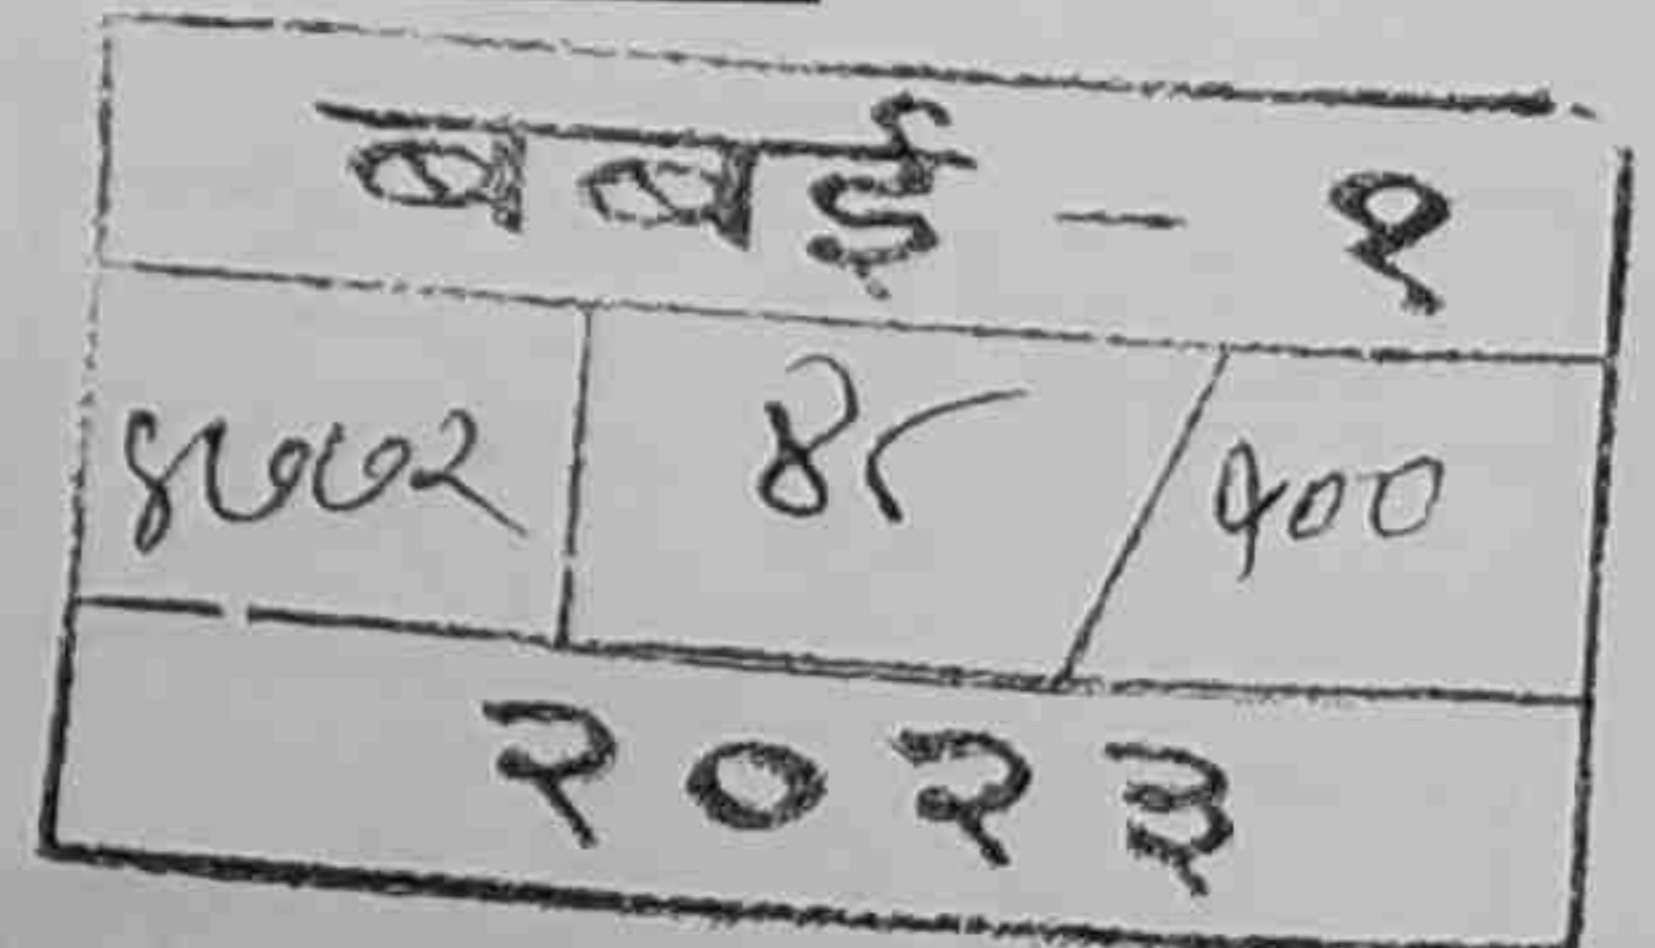 बबई - १
४७७२ ४८ / १००
२०२३